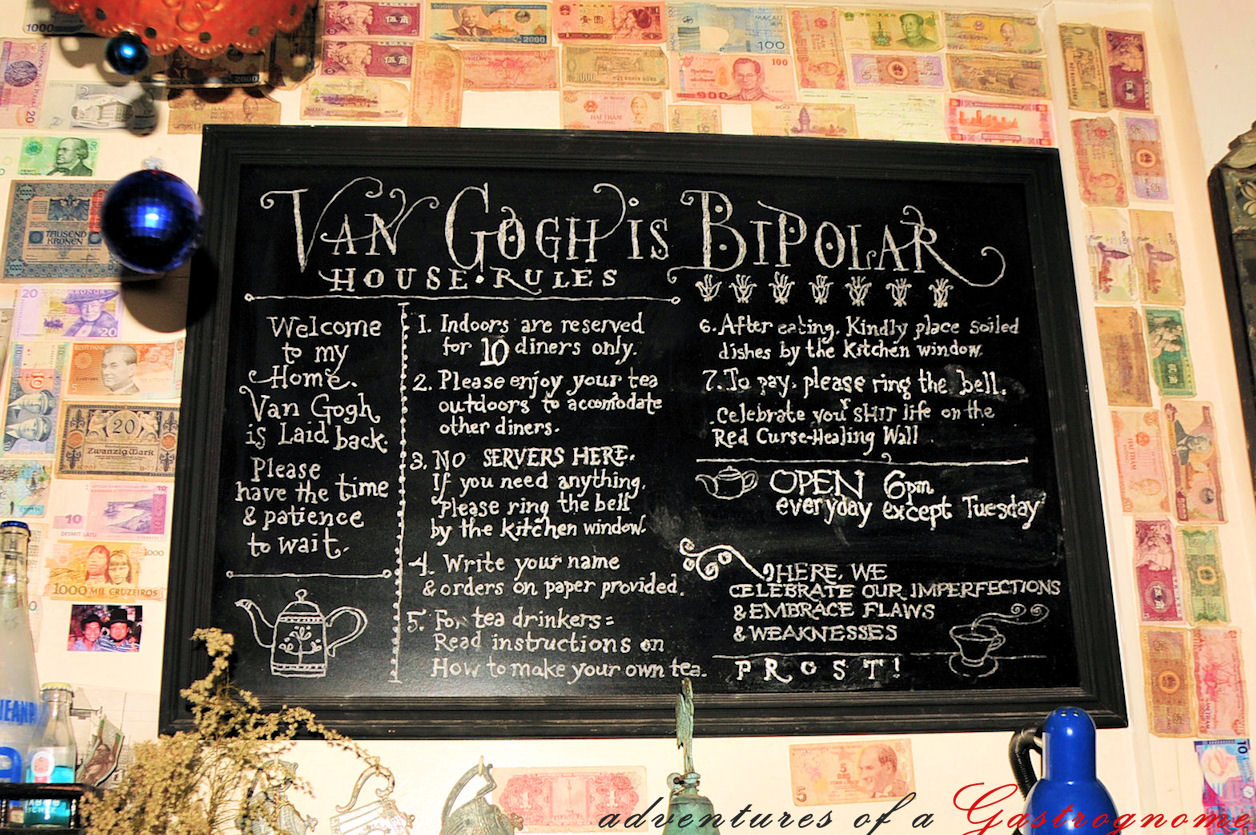 VAN GOGH IS BIPOLAR
HOUSE·RULES
Welcome
to my
Home.
Van Gogh
is Laid back.
Please
have the time
& patience
to wait.
1. Indoors are reserved
for 10 diners only.
2. Please enjoy your tea
outdoors to accomodate
other diners.
3. NO SERVERS HERE.
If you need anything,
Please ring the bell
by the kitchen window.
4. Write your name
& orders on paper provided.
5. For tea drinkers:
Read instructions on
How to make your own tea.
6. After eating, Kindly place soiled
dishes by the Kitchen window.
7. To pay, please ring the bell.
Celebrate your SHIT life on the
Red Curse-Healing Wall
OPEN 6pm
everyday except Tuesday
HERE, WE
CELEBRATE OUR IMPERFECTIONS
& EMBRACE FLAWS
& WEAKNESSES
PROST!
1000
2000
MACAU
100
100
20
TAUSEND
KRONEN
20
Zwanzig Mark
10
DESMIT LATU
1000
1000 MIL CRUZEIROS
5
10
adventures of a Gastrognome